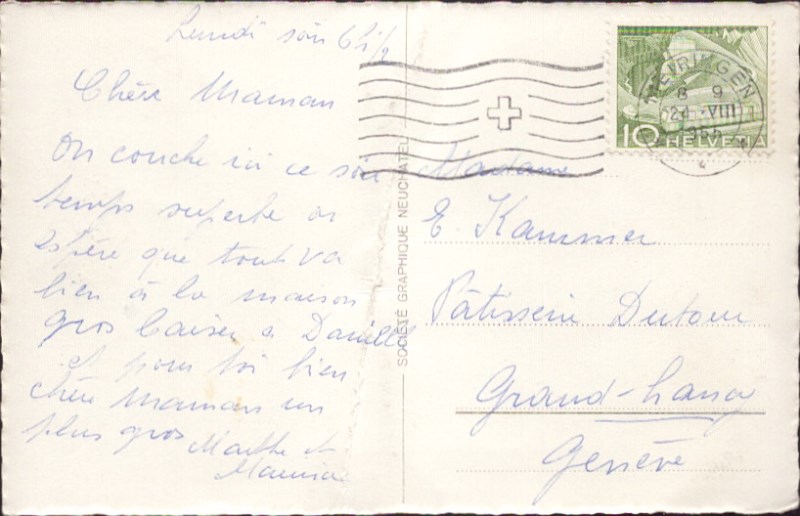 Lundi soir 6 h 1/2
Chère Maman
On couche ici ce soir
temps superbe on
espère que tout va
bien à la maison
gros baiser à Danielle
et pour toi bien
chère Maman un
plus gros
Marthe et
Maurice
SOCIÉTÉ GRAPHIQUE NEUCHATEL
MEIRINGEN
VIII
10 HELVETIA
Madame
E. Kammer
Pâtisserie Dutour
Grand-Lancy
Genève